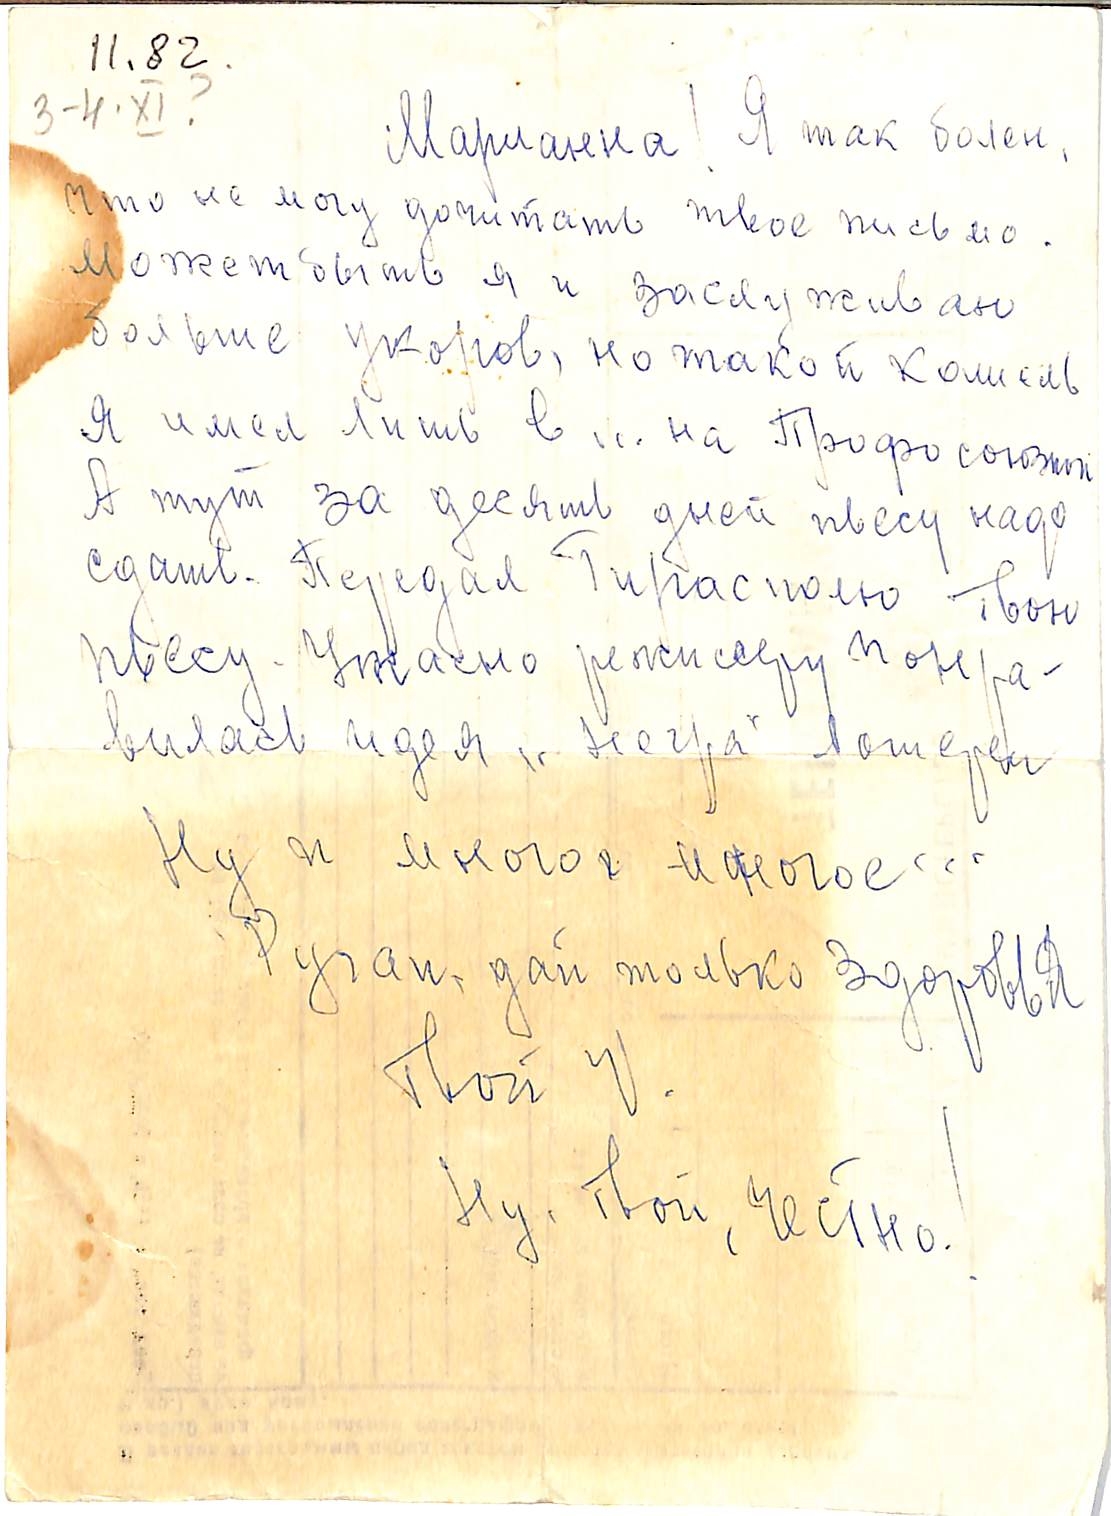 11.82.
3-4.XI?
Марианна! Я так болен,
что не могу дочитать твое письмо.
Может быть я и заслуживаю
больше укоров, но такой кашель
Я имел лишь в ... на Профсоюзной
А тут за десять дней пьесу надо
сдать. Передал Тирасполю Твою
пьесу. Ужасно режиссеру понра-
вилась идея „негра" лотереи
Ну и многое многое...
Ругай, дай только здоровья
Твой
Ну, Твой, честно!